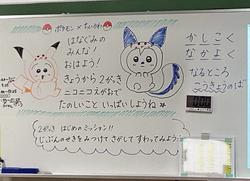 ポケモン×ちいかわ
はなぐみの
みんな！
おはよう！
きょうから2がっき
ニコニコえがおで
たのしいこと いっぱいしようね
かしこく
なかよく
なるところ
2がっき はじめのミッション!!
じぶんのせきをみつけて さがして すわってみよう